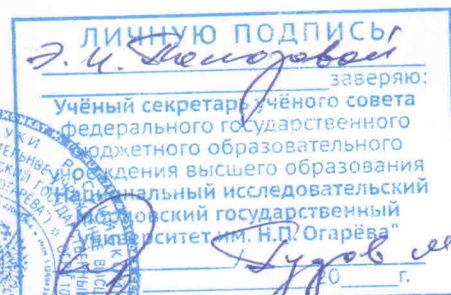 ЛИЧНУЮ ПОДПИСЬ
Э. И. Полозовой
заверяю:
Учёный секретарь учёного совета
федерального государственного
бюджетного образовательного
учреждения высшего образования
"Национальный исследовательский
Мордовский государственный
университет им. Н.П. Огарёва"
Гудов
20 г.